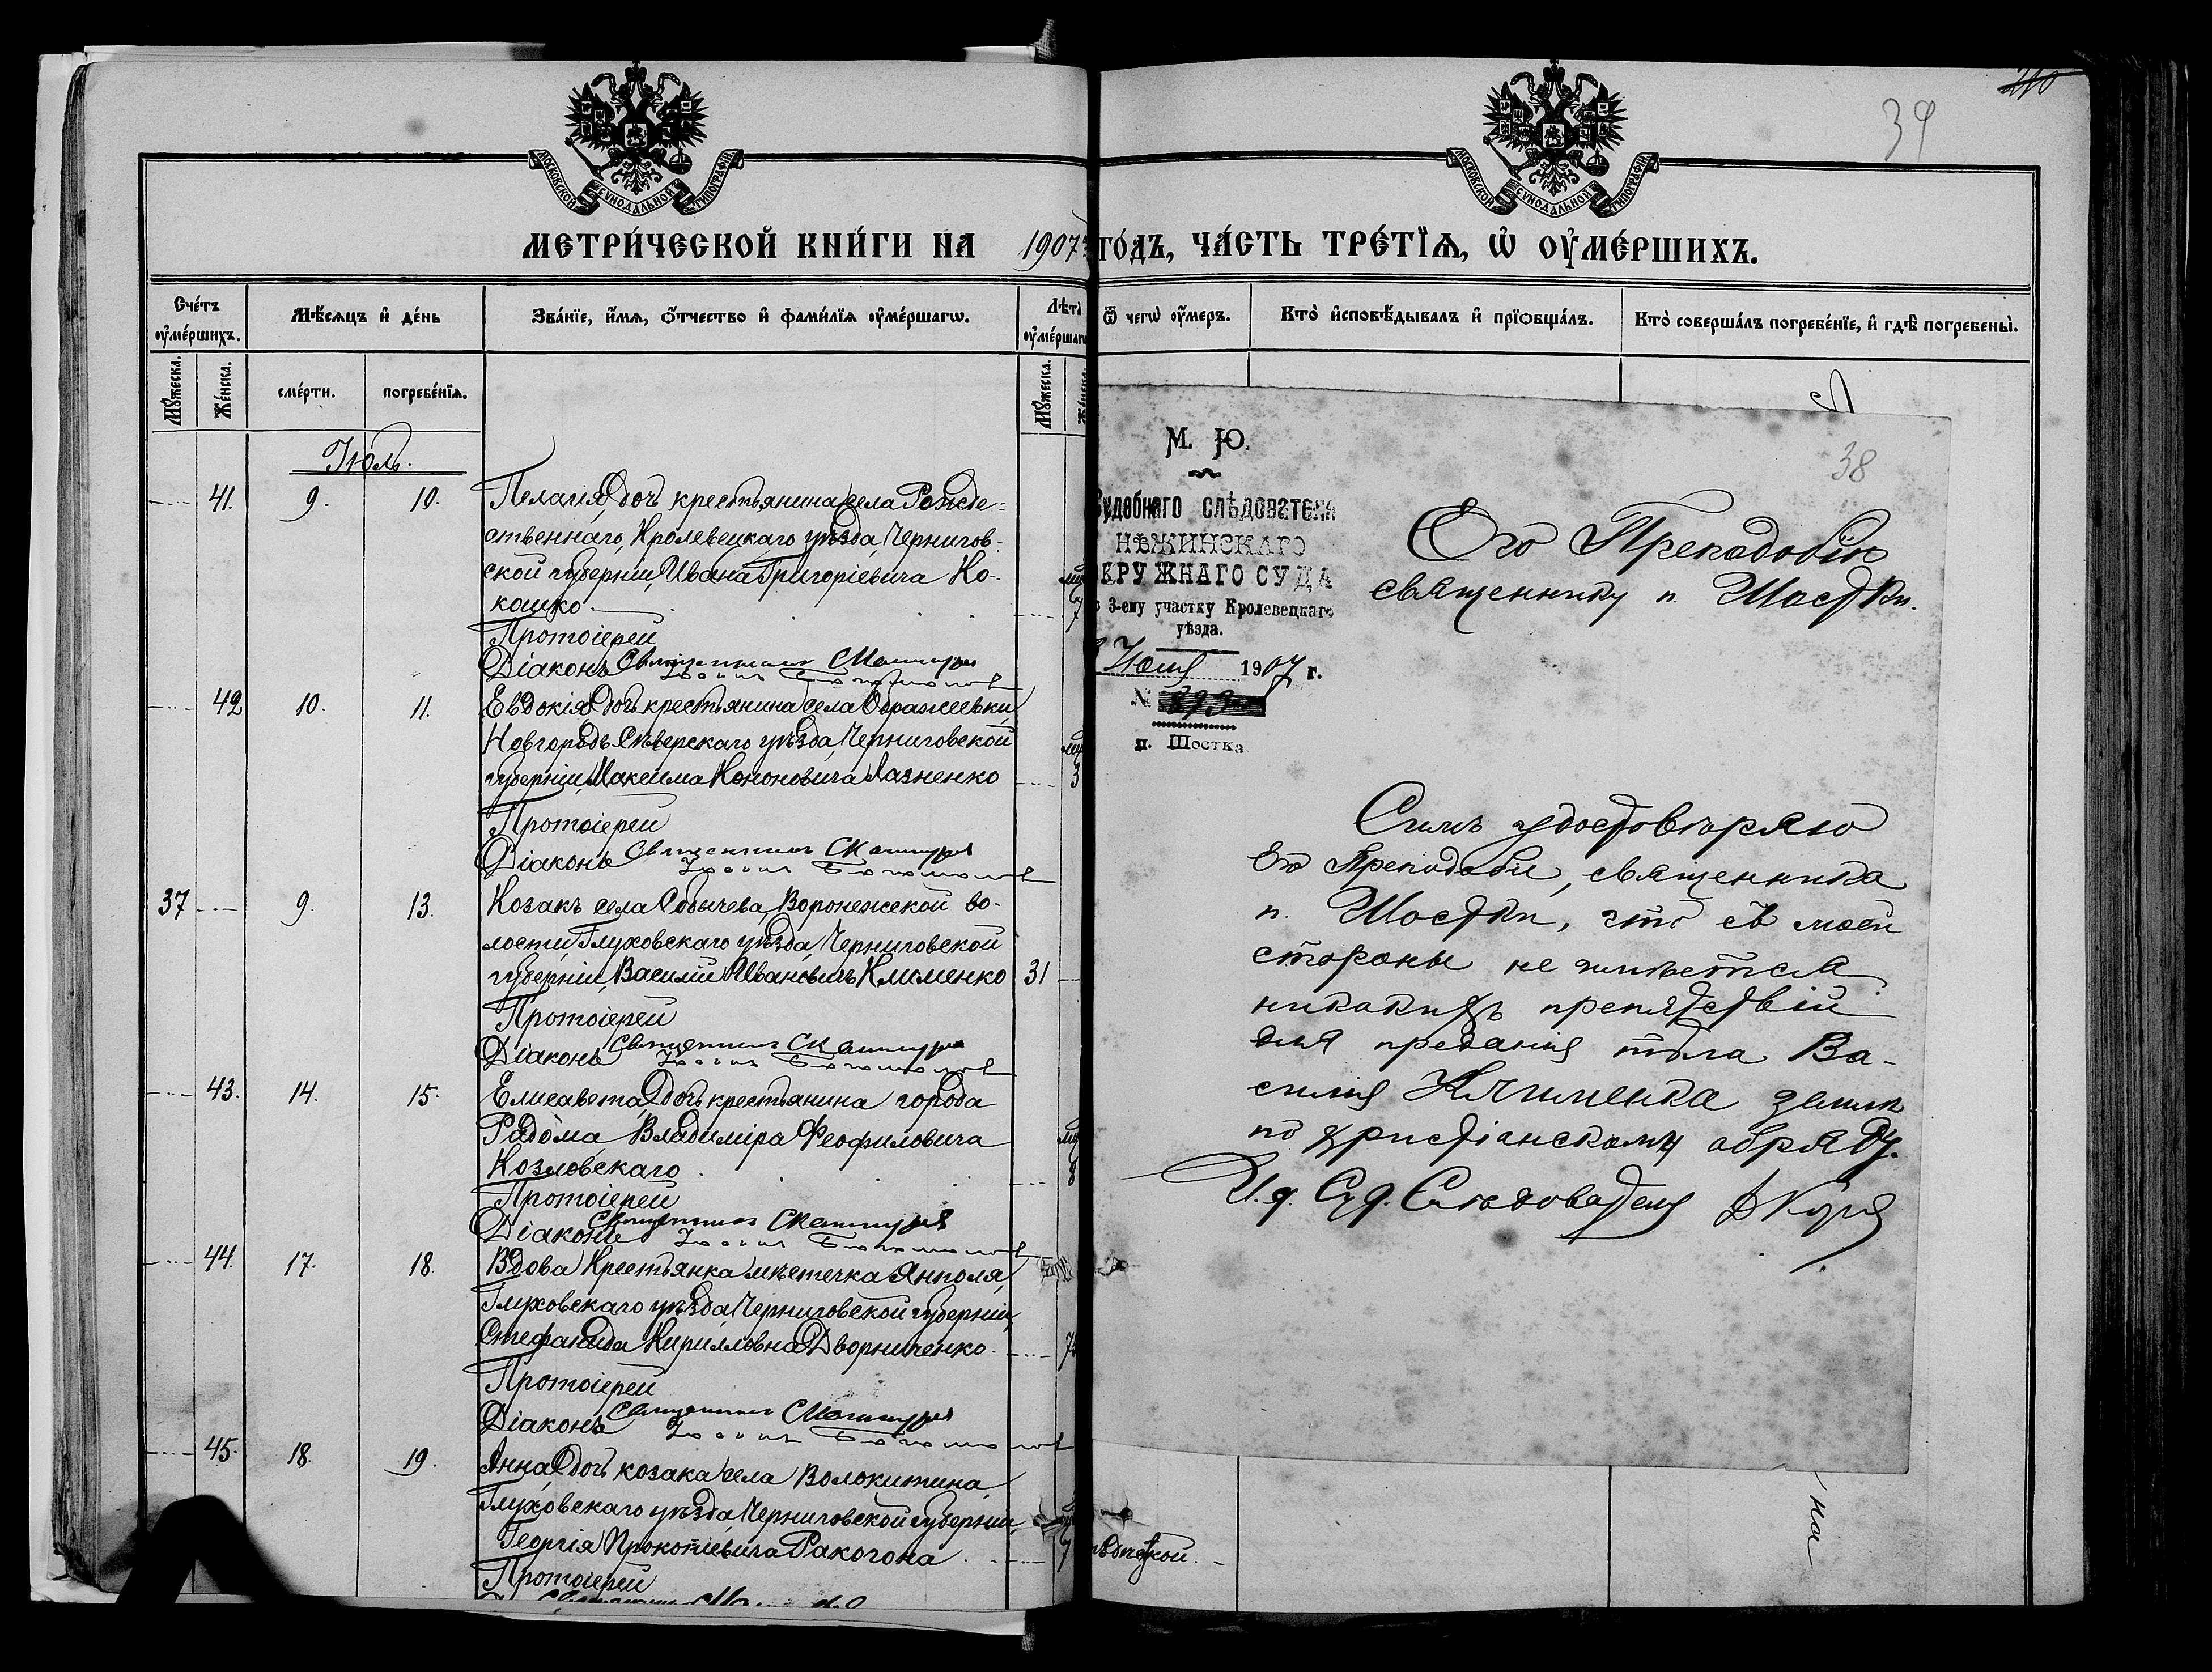 240
39
МОСКОВСКОЙ СѴНОДАЛЬНОЙ ТИПОГРАФІИ
МОСКОВСКОЙ СѴНОДАЛЬНОЙ ТИПОГРАФІИ
МЕТРИ́ЧЕСКОЙ КНИ́ГИ НА 1907 ГО́ДЪ, ЧА́СТЬ ТРЕ́ТЇѦ, Ѡ҆ ОУ҆МЕ́РШИХЪ.
Сче́тъ оу҆ме́ршихъ.
Мѣ́сѧцъ и҆ де́нь
Зва́нїе, и҆́мѧ, ѻ҆́тчество и҆ фами́лїѧ оу҆ме́ршагѡ.
Лѣта̀ оу҆ме́ршаг
Ѿ чегѡ̀ оу҆́меръ.
Кто̀ и҆сповѣ́дывалъ и҆ прїѡбща́лъ.
Кто̀ соверша́лъ погребе́нїе, и҆ гдѣ̀ погребены̀.
Мꙋ́жеска.
Же́нска.
сме́рти.
погребе́нїѧ.
Мꙋ́жеска.
Іюль.
41. 9. 10. Пелагія, дочь крестьянина села Рожде-
ственнаго, Кролевецкаго уѣзда, Чернигов-
ской губерніи, Ивана Григоріевича Ко-
кошко. 7
Протоіерей
Діаконъ Священникъ
42 10. 11. Евдокія, дочь крестьянина села Ображеевки,
Новгородъ-Сѣверскаго уѣзда, Черниговской
губерніи, Максима Кононовича Лазненко 3
Протоіерей
Діаконъ Священникъ
37 9. 13. Козакъ села Собычева, Воронежской во-
лости, Глуховскаго уѣзда, Черниговской
губерніи, Василій Ивановичъ Клименко 31
Протоіерей
Діаконъ Священникъ
43. 14. 15. Елисавета, дочь крестьянина города
Радома Владиміра Феофиловича
Козловскаго. 8
Протоіерей
Діаконъ Священникъ
44. 17. 18. Вдова крестьянка мѣстечка Янполя,
Глуховскаго уѣзда, Черниговской губерніи,
Стефанида Кирилловна Дворниченко. 7
Протоіерей
Діаконъ Священникъ
45. 18. 19. Анна, дочь козака села Волокитина,
Глуховскаго уѣзда, Черниговской губерніи,
Георгія Прокопіевича Ракогона. 7
Протоіерей
38
М. Ю.
Судебнаго слѣдователя
НѢЖИНСКАГО
ОКРУЖНАГО СУДА
3-ему участку Кролевецкаго
уѣзда.
Июля 1907 г.
№ 893
п. Шостка
Его Преподобію
священнику п. Шостки.
Симъ удостовѣряю
Его Преподобіе, священника
п. Шостки, что съ моей
стороны не имѣется
никакихъ препятствій
для преданія тѣла Ва-
силія Клименка землѣ
по христіанскому обряду.
И. д. Суд. Слѣдователя
на